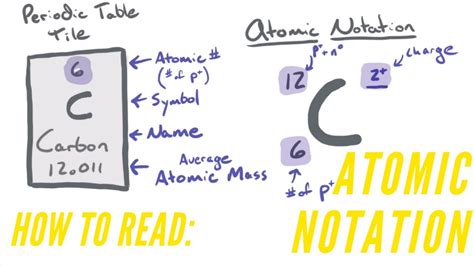 Periodic Table
Tile
6
C
Carbon
12.011
Atomic #
(# of p⁺)
Symbol
Name
Average
Atomic Mass
Atomic Notation
p⁺+n⁰
12
2⁺
charge
C
6
# of p⁺
HOW TO READ:
ATOMIC
NOTATION